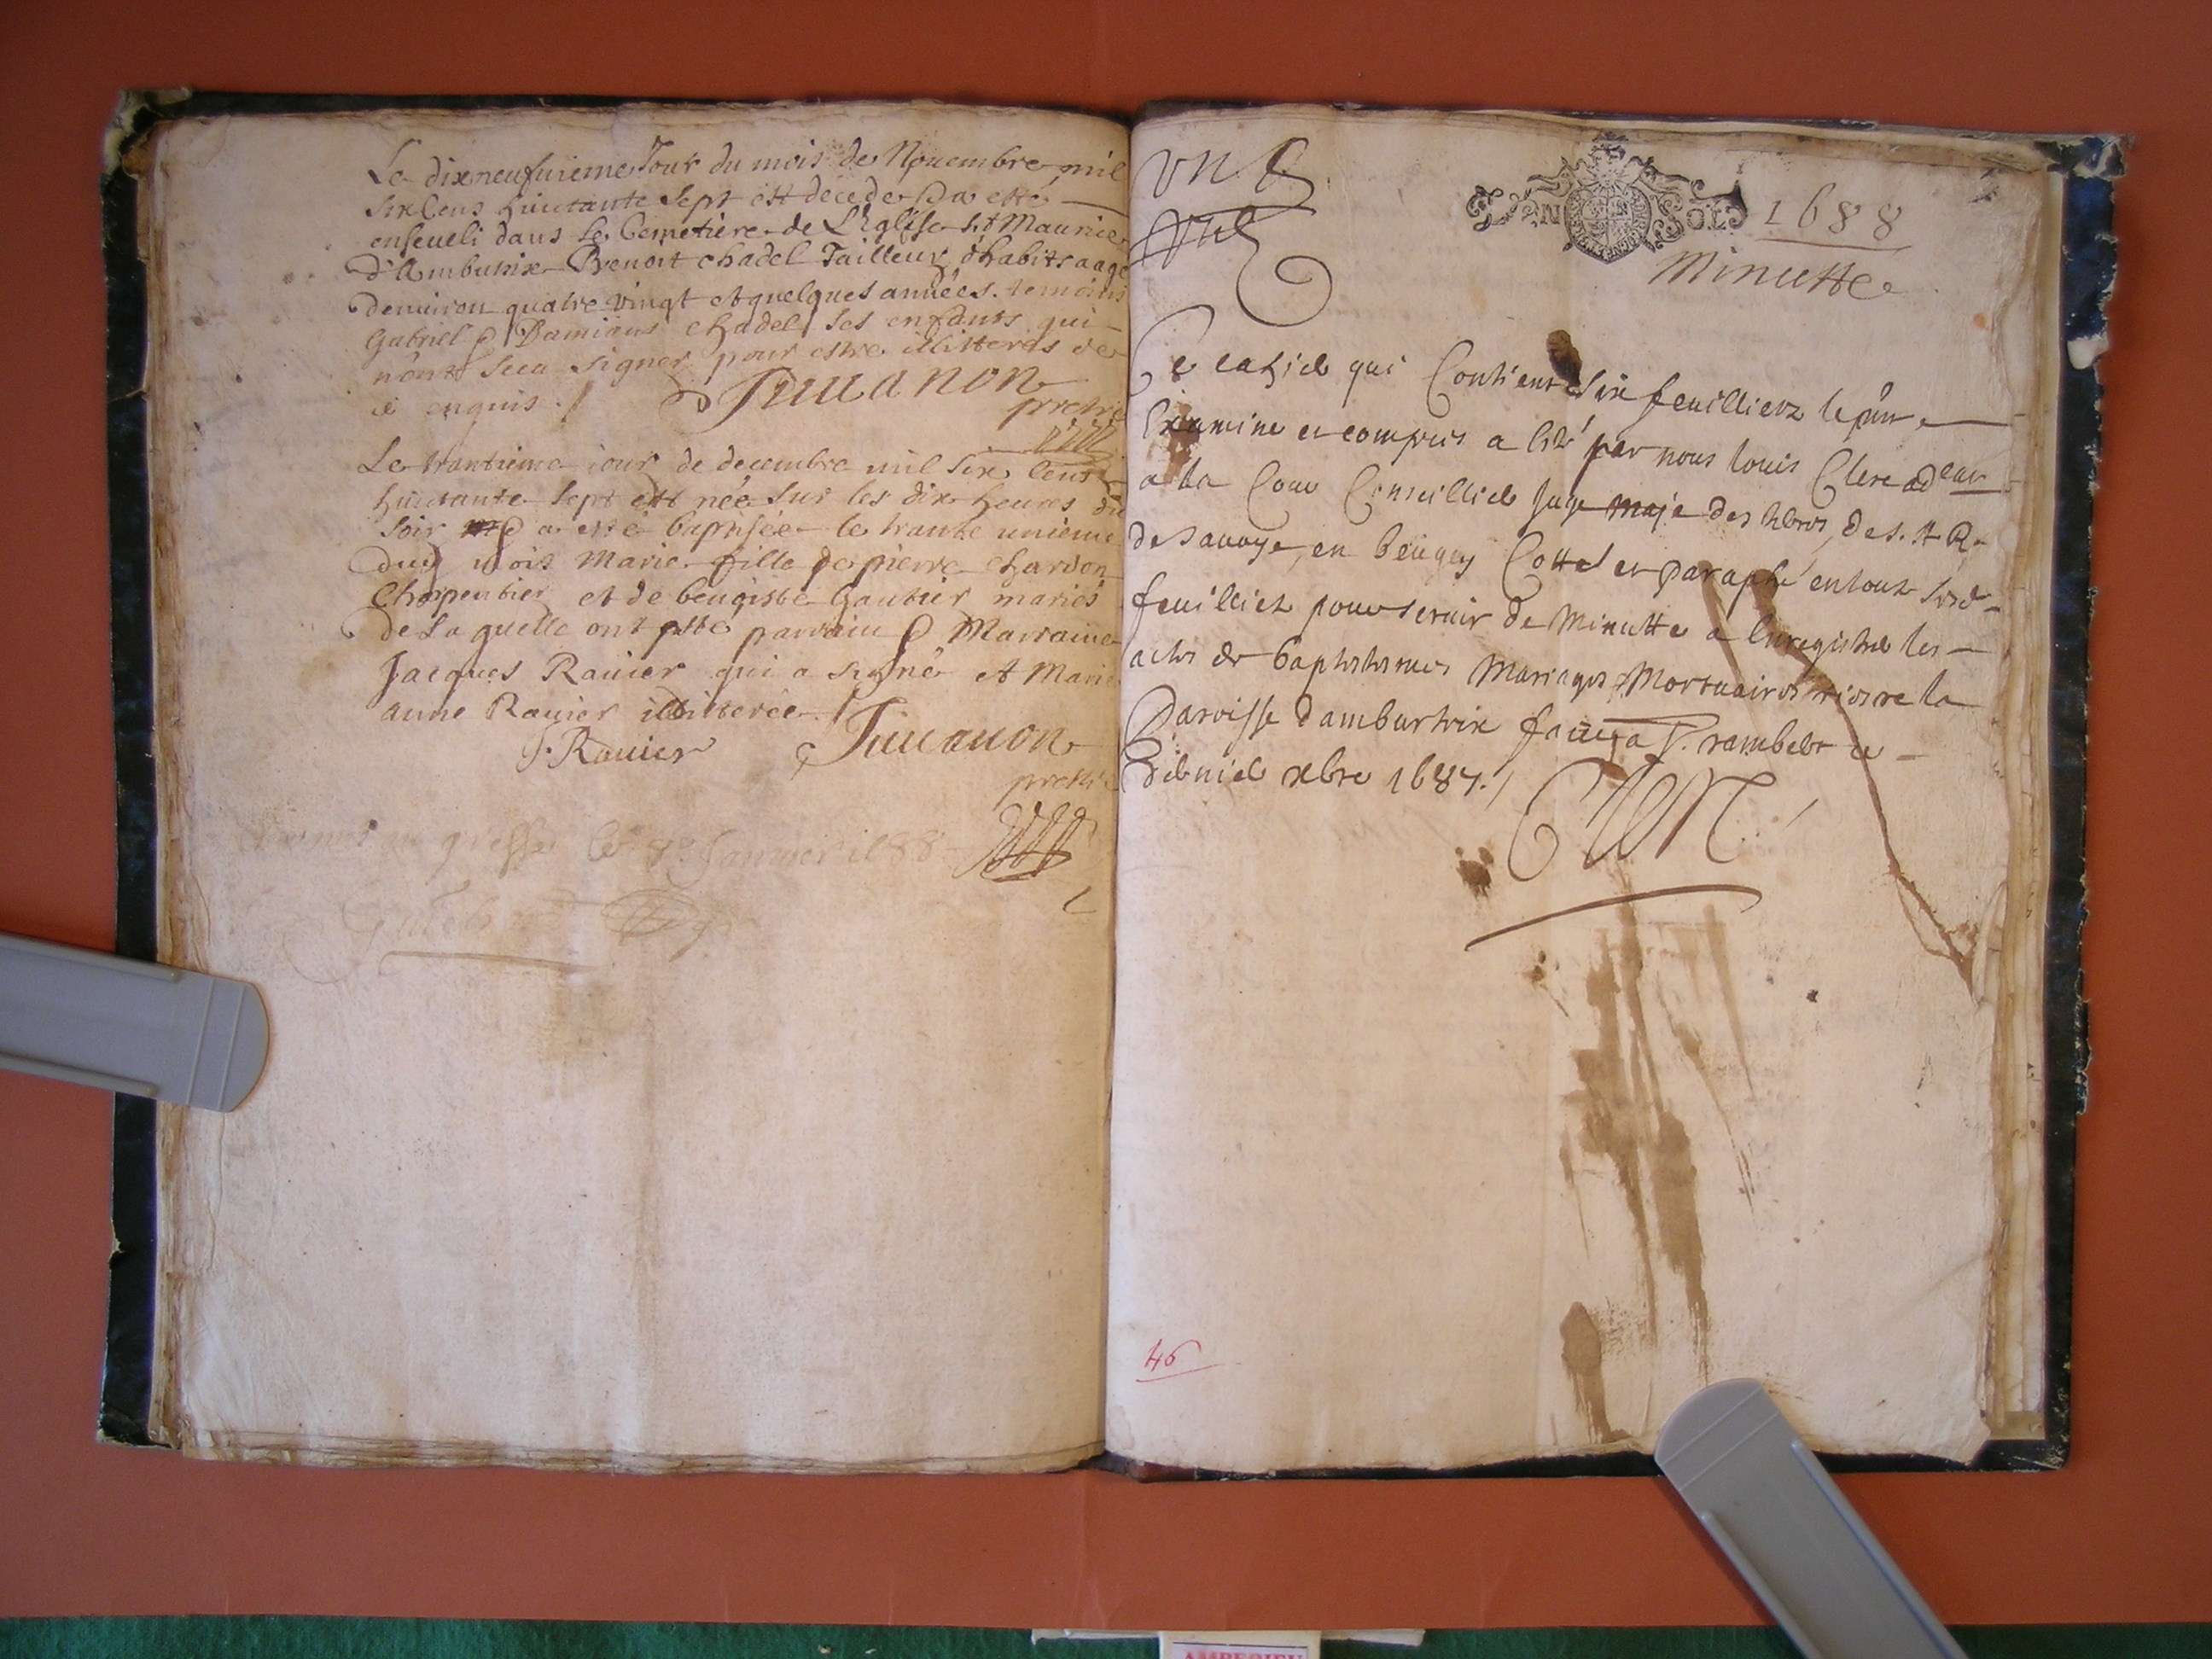 Le dixneufuieme Jour du mois de Nouembre mil
six Cens huictante Sept est decede & a esté
enseueli dans le Cemetiere de L'Eglise St Maurice
d'Ambutrix Benoit chadel Tailleur d'habits aagé
denuiron quatre vingt et quelques années. temoins
Gabriel & Damians chadel ses enfants qui
n'ont Sceu signer pour estre illitteres de
ce enquis ./.
prestre
Le trantieme jour de decembre mil six Cens
huictante Sept est née sur les dix heures du
soir & a esté baptisée le trante unieme
dud mois Marie fille de pierre chardon
Charpentier et de benoiste Gautier mariés
de Laquelle ont esté parrain & Marraine
Jacques Rauier qui a signé et Marie
anne Rauier illitterée ./.
J. Rauier
prestre
greffe le 8e Januier 1688
Un S.
VN SOL 1688
Minutte
Ce cahier qui Contient Six feuilliets le pnt
Comprins a esté par nous Louis Clerc
a la Cour Conseillier Juge maje des terres de S. A. R.
de Sauoye en beugey Cotté et paraphé en tout Sesd
feuilliets pour seruir de Minutte a Enregistrer les
actes de baptistemes Mariages & Mortuaires riere la
Paroisse dambutrix faict a St. rambert ce
Xbre 1687./.
Clerc
46
AMBERIEU